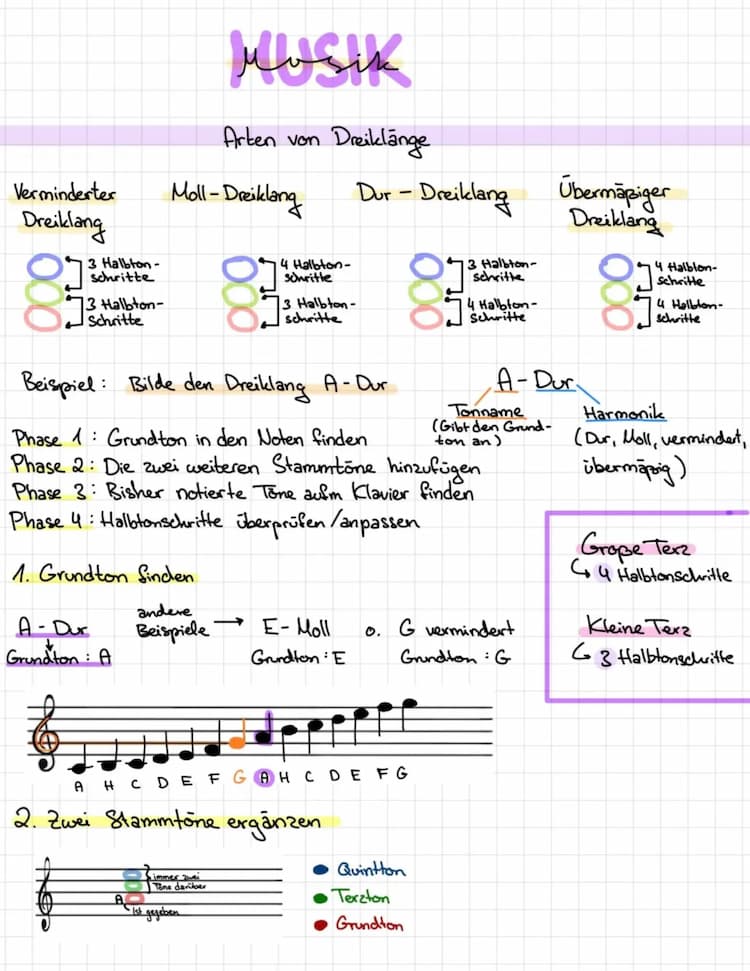 MUSIK
Musik
Arten von Dreiklänge
Verminderter Dreiklang
3 Halbton-
schritte
3 Halbton-
schritte
Moll-Dreiklang
4 Halbton-
schritte
3 Halbton-
schritte
Dur - Dreiklang
3 Halbton-
schritte
4 Halbton-
schritte
Übermäßiger
Dreiklang
4 Halbton-
schritte
4 Halbton-
schritte
Beispiel: Bilde den Dreiklang A-Dur
A-Dur
Tonname
(Gibt den Grund-
ton an)
Harmonik
(Dur, Moll, vermindert,
übermäßig)
Phase 1: Grundton in den Noten finden
Phase 2: Die zwei weiteren Stammtöne hinzufügen
Phase 3: Bisher notierte Töne aufm Klavier finden
Phase 4: Halbtonschritte überprüfen/anpassen
Große Terz
↳ 4 Halbtonschritte
Kleine Terz
↳ 3 Halbtonschritte
1. Grundton finden
A-Dur
Grundton: A
andere
Beispiele →
E-Moll
Grundton: E
o. G vermindert
Grundton: G
A H C D E F G A H C D E F G
2. Zwei Stammtöne ergänzen
immer zwei
Töne darüber
A
Ist gegeben
Quintton
Terzton
Grundton